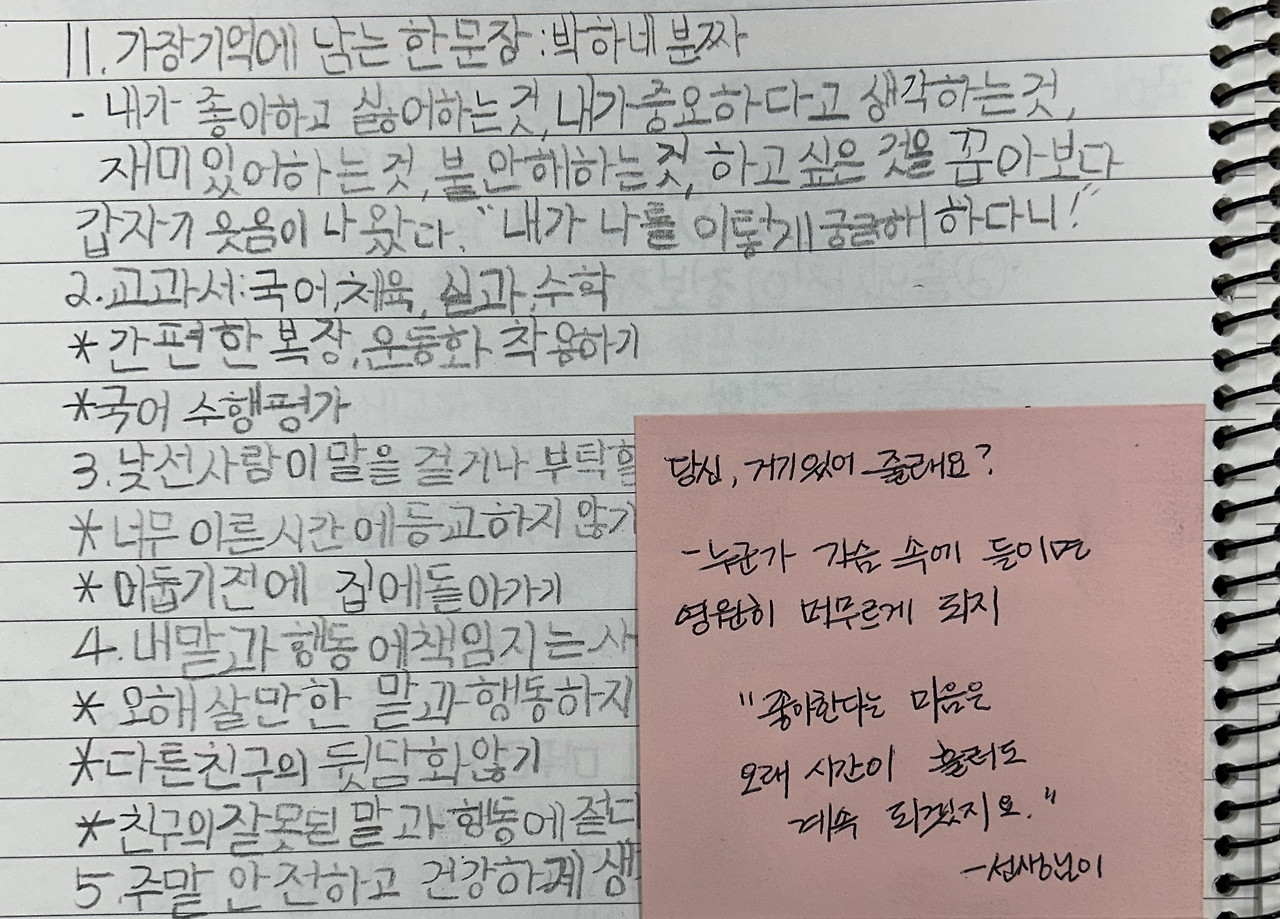 11. 가장기억에 남는 한문장 : 박하네 분짜
- 내가 좋아하고 싫어하는것, 내가중요하다고 생각하는것,
재미있어하는 것, 불안해하는것, 하고싶은 것을 꼽아보다
갑자기 웃음이 나왔다. "내가 나를 이렇게궁금해하다니!"
2.교과서:국어,체육, 실과,수학
*간편한 복장,운동화 착용하기
*국어 수행평가
3.낯선사람이말을 걸거나 부탁할
*너무이른시간에등교하지 않기
*어둡기전에 집에돌아가기
4.내말과 행동에책임지는 사
*오해살만한 말과행동하지
*다른친구의 뒷담화않기
*친구의잘못된 말과 행동에절대
5.주말 안전하고 건강하게 생
당신, 거기있어 줄래요?
-누군가 가슴 속에 들이면
영원히 머무르게 되지
"좋아한다는 마음은
오래 시간이 흘러도
계속 되겠지요."
-선생님이